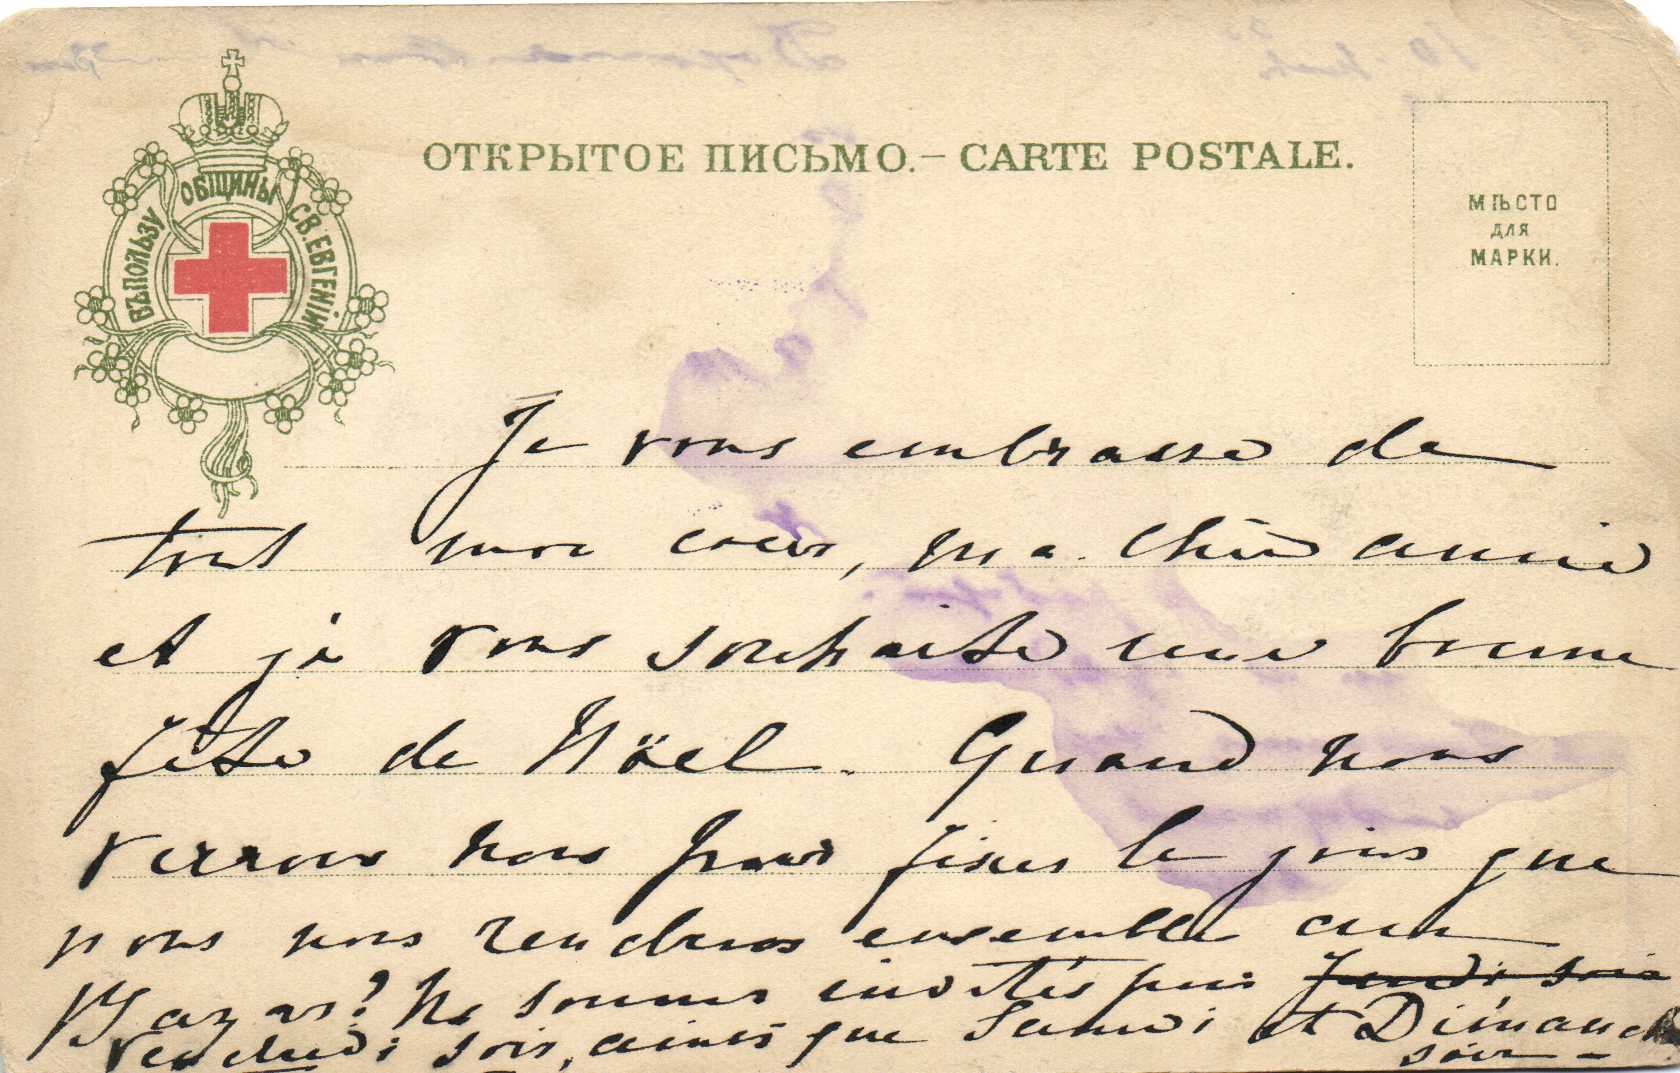 ВЪ ПОЛЬЗУ ОБЩИНЫ СВ. ЕВГЕНІИ
ОТКРЫТОЕ ПИСЬМО.– CARTE POSTALE.
МѢСТО
ДЛЯ
МАРКИ.
Je vous embrasse de
tout mon coeur, ma chère amie
et je vous souhaite une bonne
fête de Nöel. Quand nous
verrons nous pour fixer le jour que
nous nous rendrons ensemble au
Bazar? Ns sommes invités pour Jeudi soir
Vendredi soir, ainsi que Samedi et Dimanche
soir –